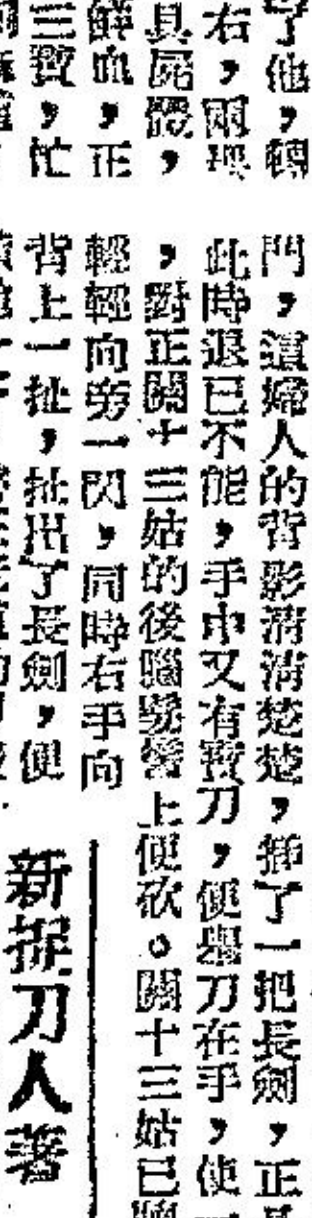 了他，轉
右，兩
具屍骸，
鮮血，正
三寶，忙
門，這婦人的背影清清楚楚，揷了一把長劍，正
此時退已不能，手中又有寶刀，便舉刀在手，使
，對正關十三姑的後腦髻上便砍。關十三姑已
輕輕向旁一閃，同時右手向
背上一扯，扯出了長劍，便
新捉刀人著